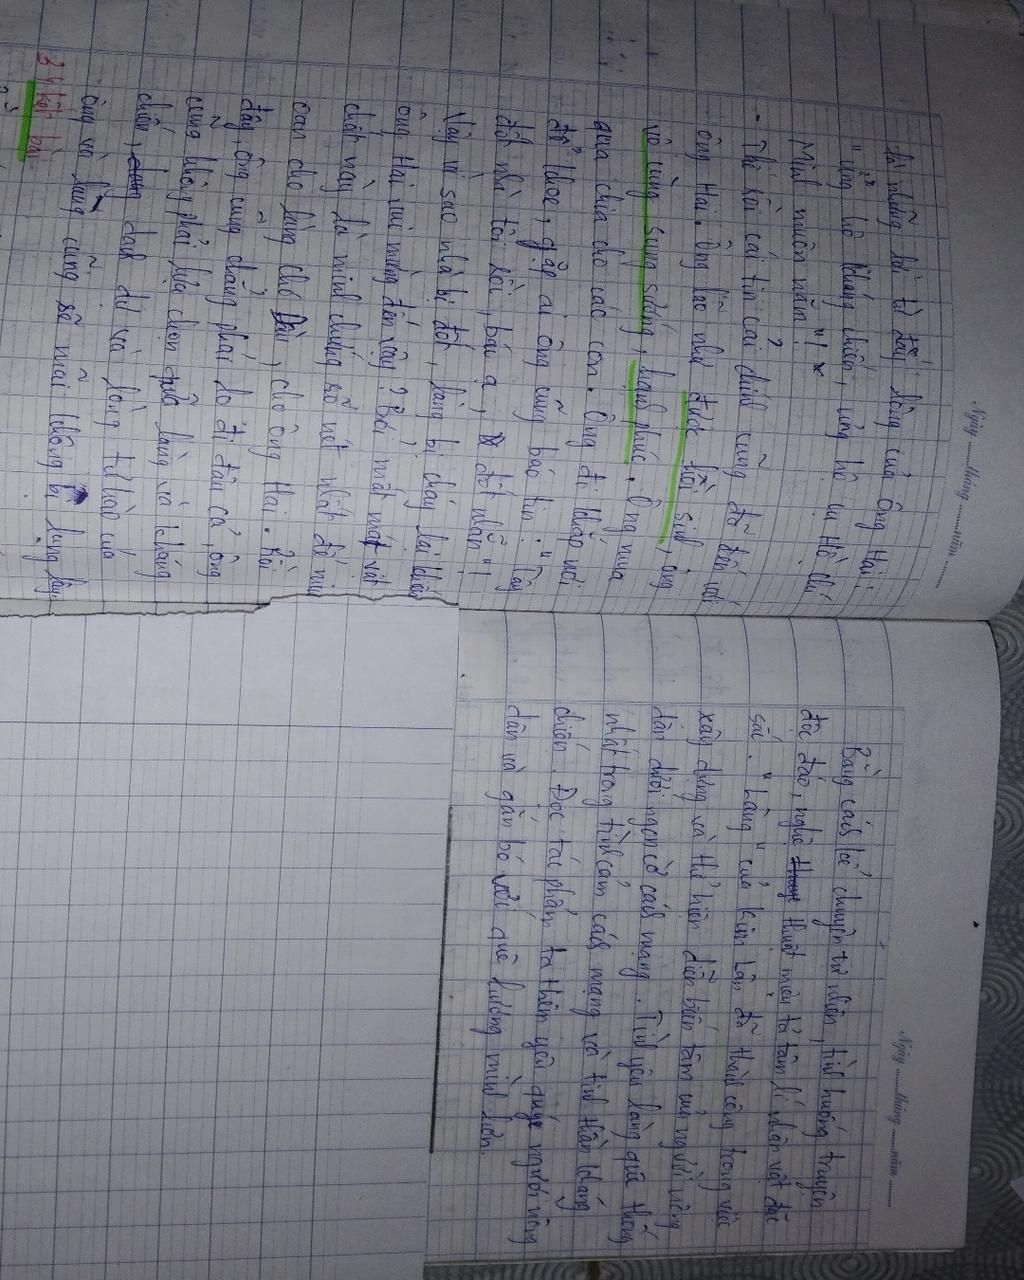 Ngày ........tháng ........năm ........
là những lời từ đáy lòng của ông Hai:
"ủng hộ kháng chiến, ủng hộ cụ Hồ Chí
Minh muôn năm"!
- Thế rồi cái tin cải chính cũng đã đến với
ông Hai. Ông lão như được hồi sinh, ông
vô cùng sung sướng, hạnh phúc. Ông mua
quà chia cho các con. Ông đi khắp nơi
để khoe, gặp ai ông cũng báo tin: "Tây
đốt nhà tôi rồi, bác ạ, đốt nhẵn"!
Vậy vì sao nhà bị đốt, làng bị cháy lại khiến
ông Hai vui mừng đến vậy? Bởi mất mát vật
chất này là minh chứng rõ nét nhất để minh
oan cho làng chợ Dầu, cho ông Hai. Rồi
đây, ông cũng chẳng phải lo đi đâu cả, ông
cũng không phải lựa chọn giữa làng và kháng
chiến, danh dự và lòng tự hào của
ông và làng cũng sẽ mãi không bị lung lay
3, kết bài
Ngày ........tháng ........năm ........
Bằng cách kể chuyện tự nhiên, tình huống truyện
độc đáo, nghệ thuật miêu tả tâm lí nhân vật đặc
sắc. "Làng" của Kim Lân đã thành công trong việc
xây dựng và thể hiện diễn biến tâm của người nông
dân dưới ngọn cờ cách mạng. Tình yêu làng quê thống
nhất trong tình cảm cách mạng và tinh thần kháng
chiến. Đọc tác phẩm ta thêm yêu quý người nông
dân và gắn bó với quê hương mình hơn.